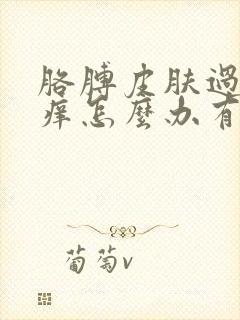 胳膊皮肤過
痒怎麽办有
葡萄v